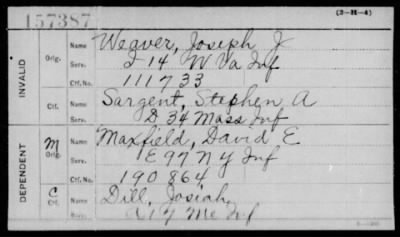 157387
(3-H-4)
INVALID
Orig.
Name Weaver, Joseph J
Serv. I 14 W Va Inf
Ctf. No. 111733
Ctf.
Name Sargent, Stephen A
Serv. D 34 Mass Inf
DEPENDENT
M
Orig.
Name Maxfield, David E
Serv. E 97 N Y Inf
Ctf. No. 190864
C
Ctf.
Name Dill, Josiah
Serv. 17 Me Inf